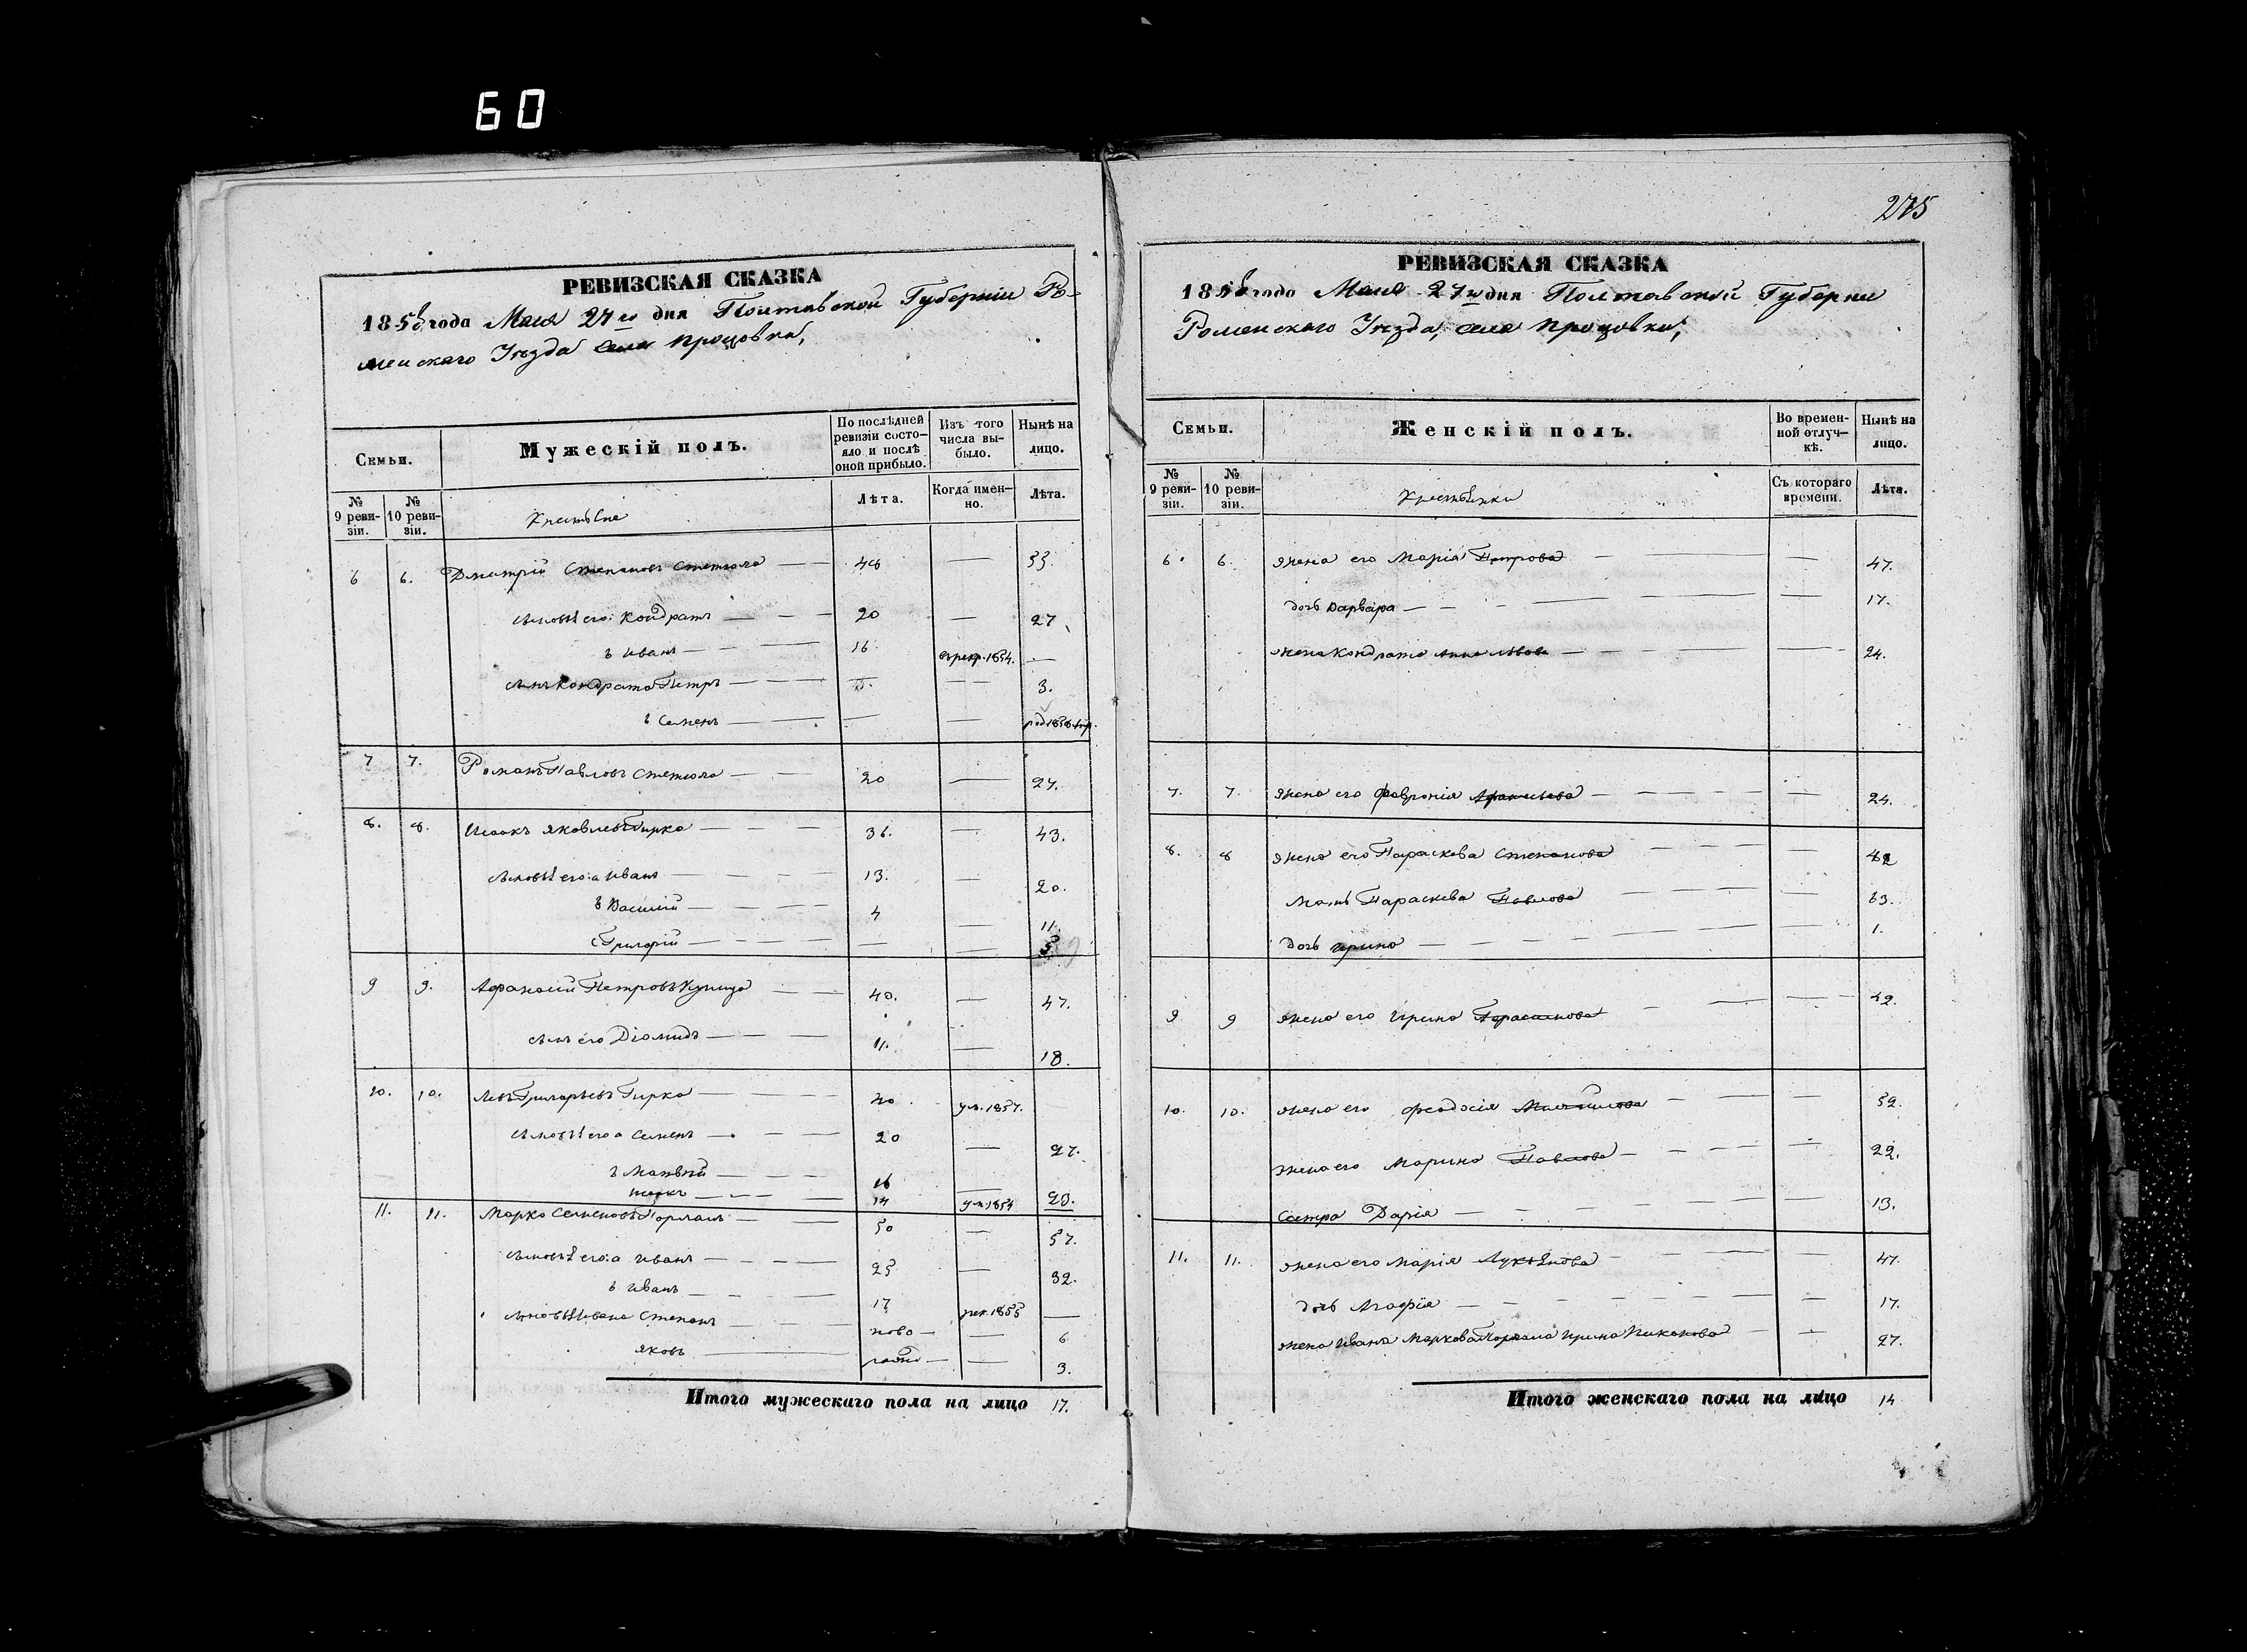 60
275
РЕВИЗСКАЯ СКАЗКА
1858 года Мая 27 го дня Полтавской Губерніи Ро-
менскаго Уѣзда села Процовки,
Семьи.
Мужескій полъ.
По послѣдней ревизіи состо-яло и послѣ оной прибыло.
Изъ того числа вы-было.
Нынѣ на лицо.
№ 9 реви-зіи.
№ 10 реви-зіи.
Крестьяне
Лѣта.
Когда имен-но.
Лѣта.
6 6. Дмитрій Степановъ — — 48 — 55.
сыновья его: Кондратъ — — 20 — 27
Иванъ — — 16. въ рекр. 1854. —
сынъ Кондрата Петръ — — — — 3.
Семенъ — — — —
7 7. Романъ Павловъ — — 20 — 27.
8. 8. Исаакъ Яковлевъ Гирка — — — 36. — 43.
сыновья его: а Иванъ — — — 13. — 20.
в Василій — — — 4 — 11.
Григорій — — — — — 5
9 9. Афанасій Петровъ — — 40. — 47.
сынъ его Діомидъ — — — 11. — 18.
10. 10. Левъ Григорьевъ Гирка — — — 40. ум. 1857.
сыновья его а Семенъ — — — 20 — 27.
в Матвій — — — 16 — 23.
Исакъ — — — 14 ум. 1854
11. 11. Марко Семеновъ — — 50 — 57.
сыновья его: а Иванъ — — — 25 — 32.
в Иванъ — — — 17 рек. 1855 —
сыновья Ивана Степанъ — — — ново — — 6
Яковъ — рожд — — 3.
Итого мужескаго пола на лицо 17.
РЕВИЗСКАЯ СКАЗКА
1858 года Мая 27 го дня Полтавской Губерни
Роменскаго Уѣзда, села Процовки,
Семьи.
Женскій полъ.
Во времен-ной отлуч-кѣ.
Нынѣ на лицо.
№ 9 реви-зіи.
№ 10 реви-зіи.
Крестьянки
Съ котораго времени.
Лѣта.
6. 6. жена его Марія Петрова — — 47.
дочь Варвара — — — 17.
жена Кондрата Анна Львова — — — 24.
7. 7. жена его Февронія — — — 24.
8. 8 жена его Параскева Степанова — — — 42
Мать Параскева Павлова — — — 63.
дочь Ирина — — — 1.
9 9 жена его Ирина Герасимова — — — 42.
10. 10. жена его Феодосія Михайлова — — — 52.
жена его Марина Павлова — — — 22.
Сестра Дарія — — — 13.
11. 11. жена его Марія Лукьянова — — — 47.
дочь Агафія — — — 17.
жена Ивана Маркова Ирина — — 27.
Итого женскаго пола на лицо 14